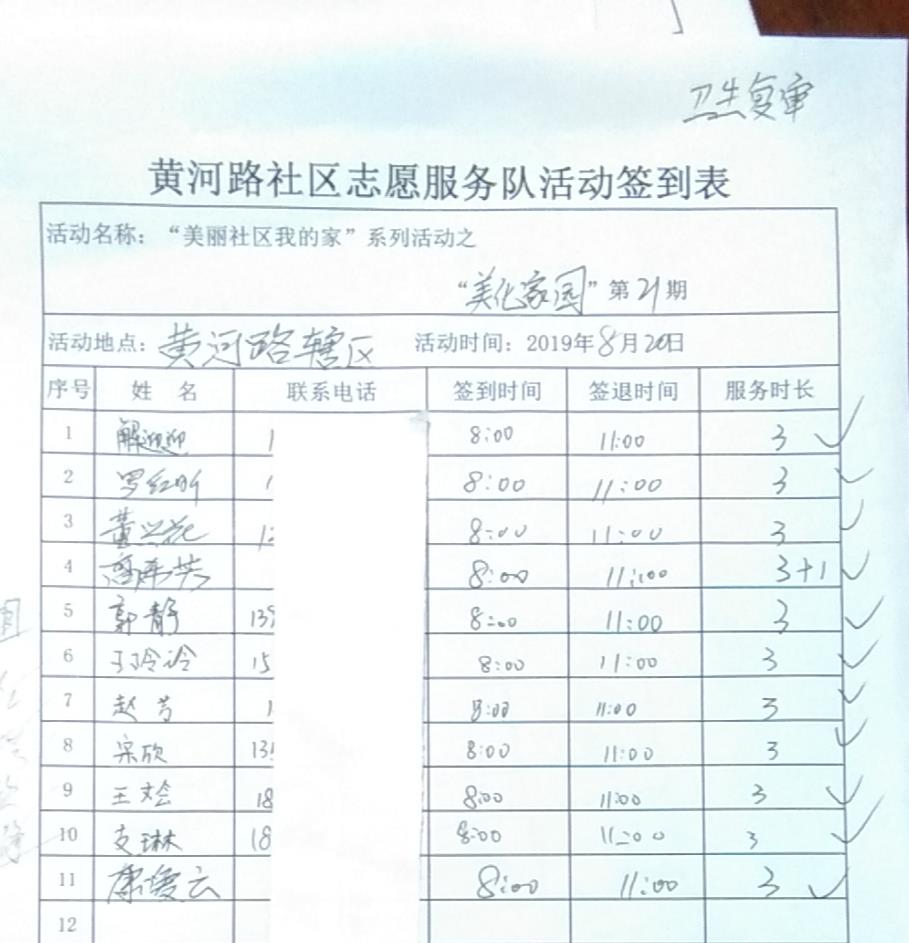 卫生复审
黄河路社区志愿服务队活动签到表
活动名称：“美丽社区我的家”系列活动之
“美化家园”第21期
活动地点：黄河路辖区 活动时间：2019年8月20日
序号 姓 名 联系电话 签到时间 签退时间 服务时长
1 解迎迎 1 8:00 11:00 3 ✓
2 罗红昕 8:00 11:00 3 ✓
3 董兴花 8:00 11:00 3 ✓
4 芳 8:00 11:00 3+1 ✓
5 郭静 139 8:00 11:00 3 ✓
6 王玲玲 15 8:00 11:00 3 ✓
7 赵芳 1 8:00 11:00 3 ✓
8 宋欣 135 8:00 11:00 3 ✓
9 王文会 18 8:00 11:00 3 ✓
10 支琳 18 8:00 11:00 3 ✓
11 康爱云 8:00 11:00 3 ✓
12